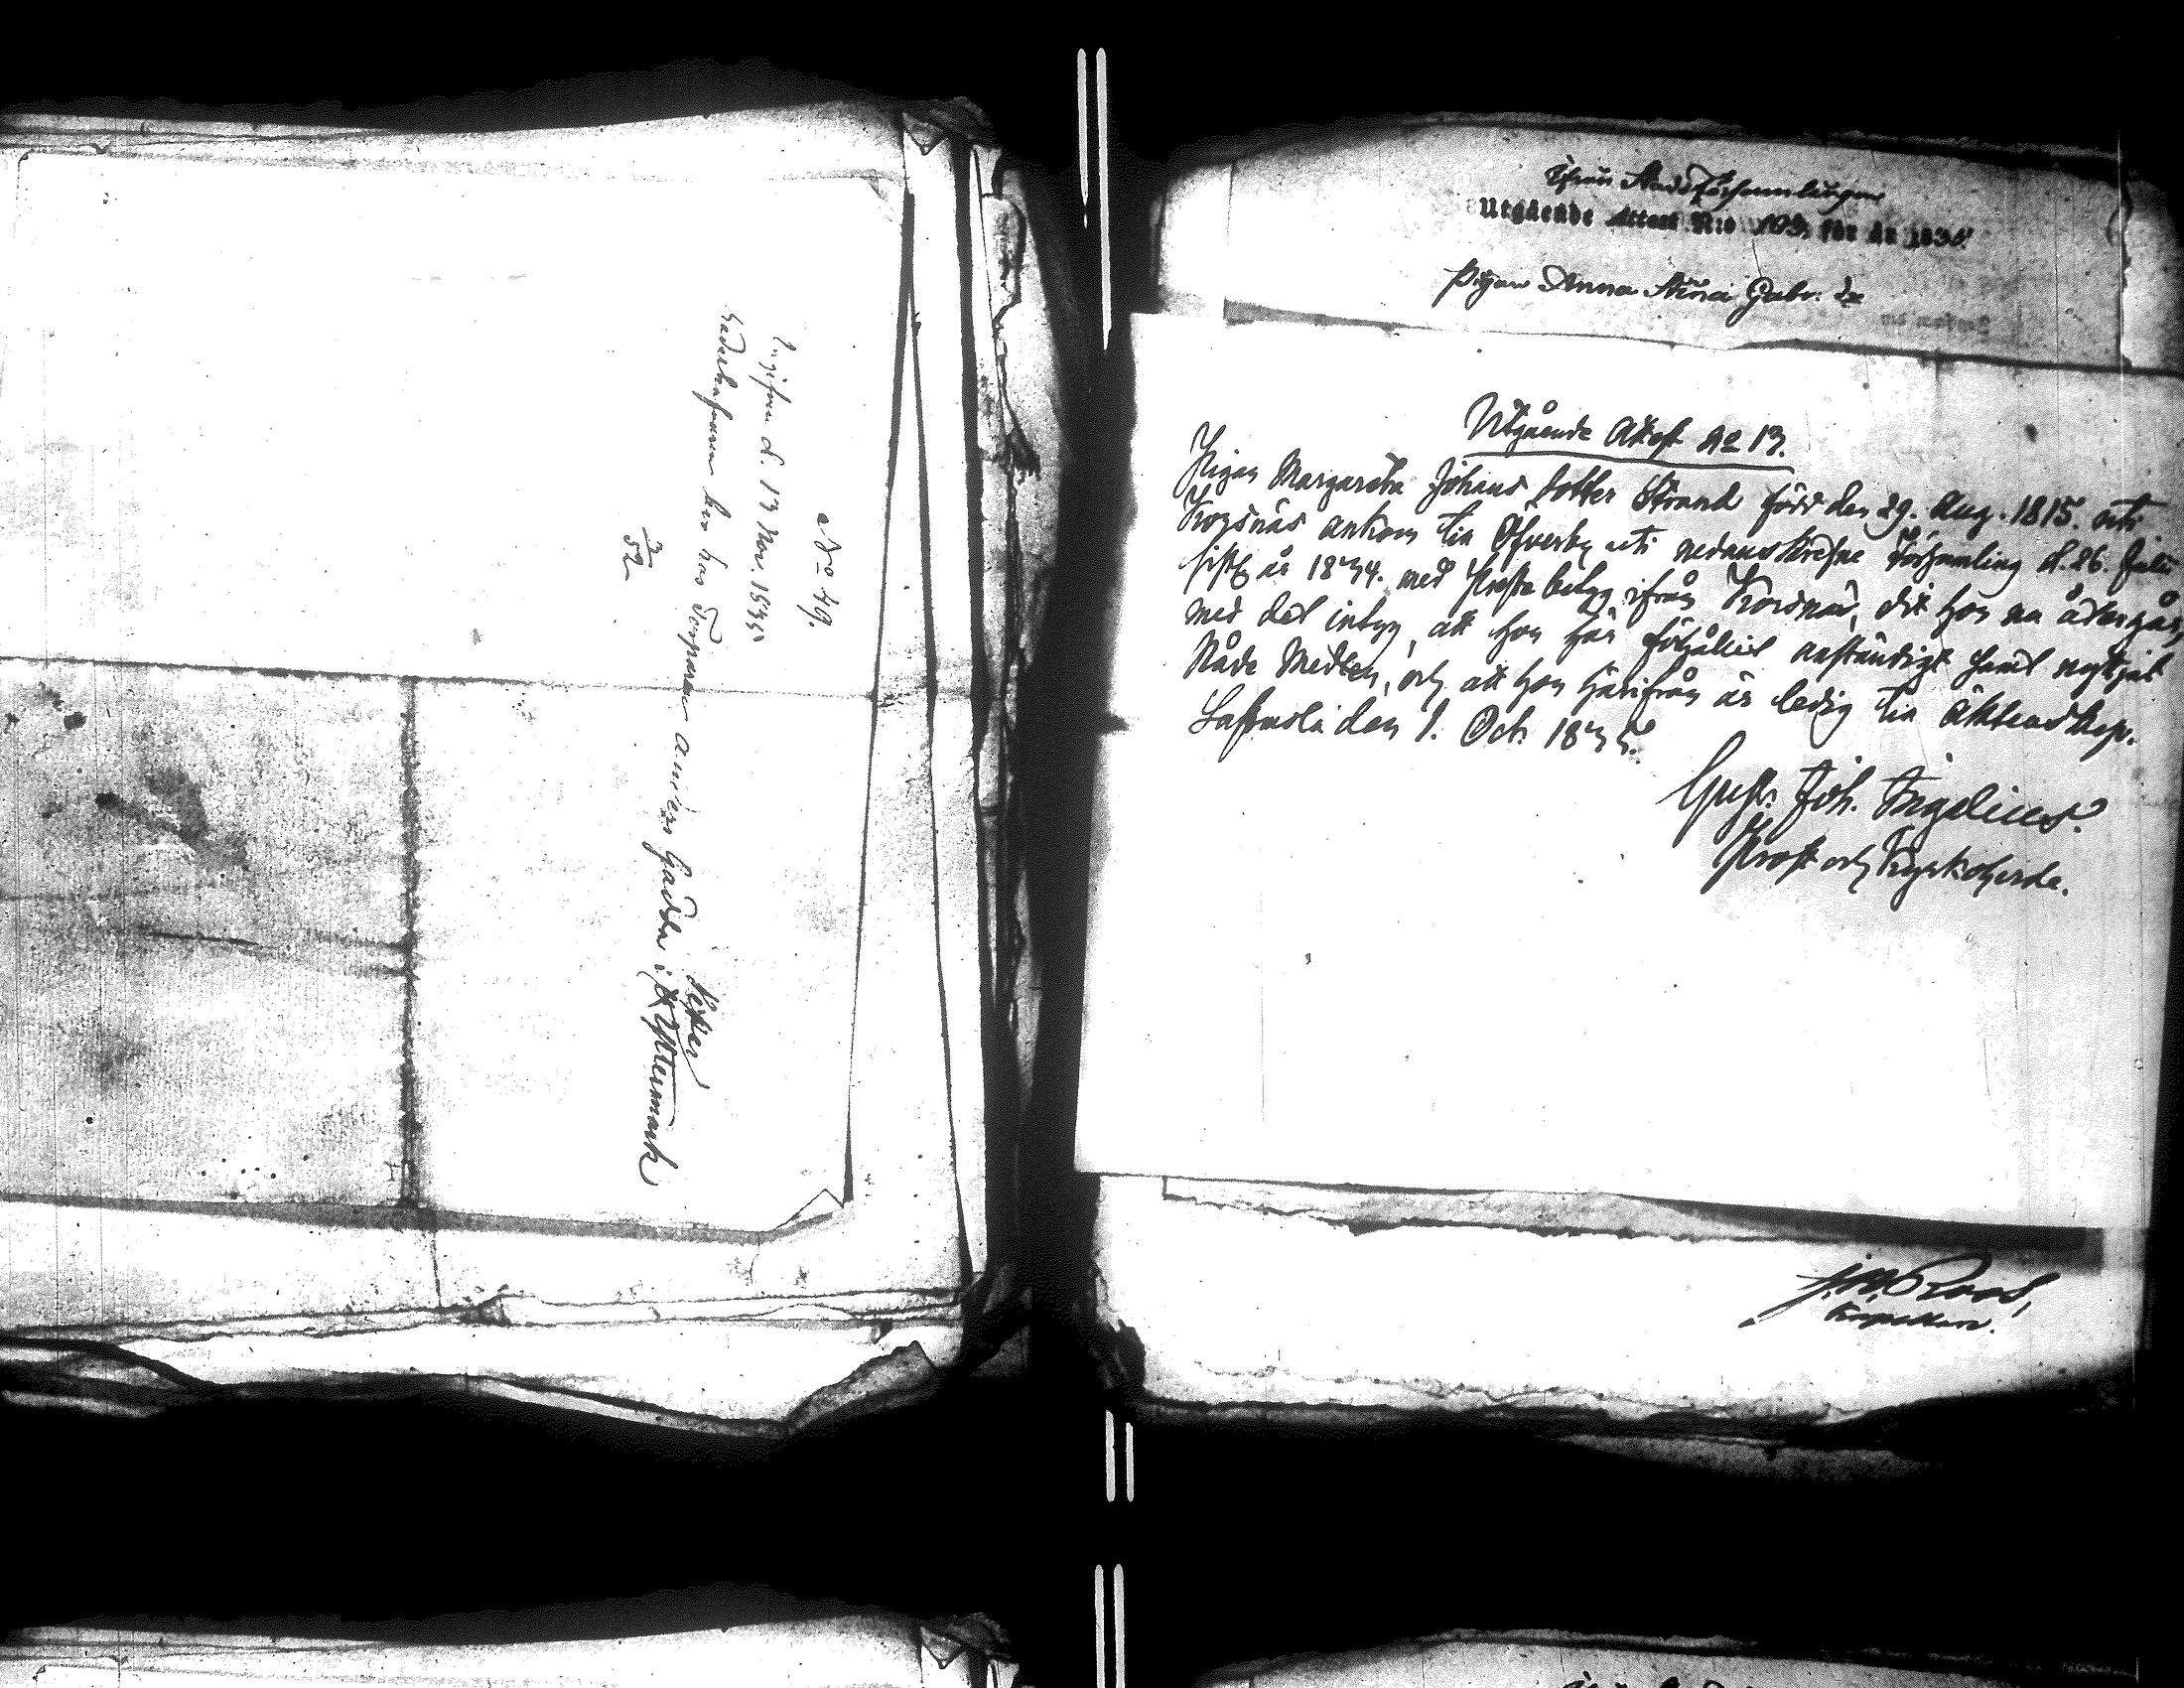 No 49.
d. 13 Nov. 1835
hos Torparen Anders Gädda i
Yttermark
3/52
Stadsförsamlingen
Utgående Attest N:o 103. för år 1835
Pigan Anna Stina Gabr. dr
Utgående Attest No 13.
Pigan Margareta Johans dotter Strand född den 29. Aug. 1815. uti
Korsnäs ankom till Öfverby uti nedanskrefne Församling d. 26. Julii
sistl. år 1834. med Prestabetyg ifrån Korsnäs, dit hon nu återgår,
med det intyg, att hon här förhållit anständigt samt nyttjat
Nåde Medlen, och att hon härifrån är ledig till Äktenskap.
den 1. Oct. 1835.
Gust. Joh. Ingelius.
Prost och Kyrkoherde.
J. M. Roos,
Kapellan.